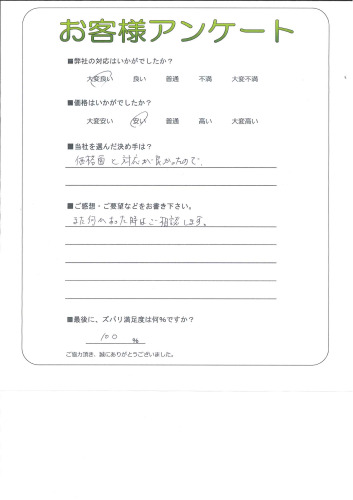 お客様アンケート
■弊社の対応はいかがでしたか?
大変良い 良い 普通 不満 大変不満
■価格はいかがでしたか?
大変安い 安い 普通 高い 大変高い
■当社を選んだ決め手は?
価格面と対応が良かったので、
■ご感想・ご要望などをお書き下さい。
また何かあった時はご相談します。
■最後に、ズバリ満足度は何%ですか?
100 %
ご協力頂き、誠にありがとうございました。